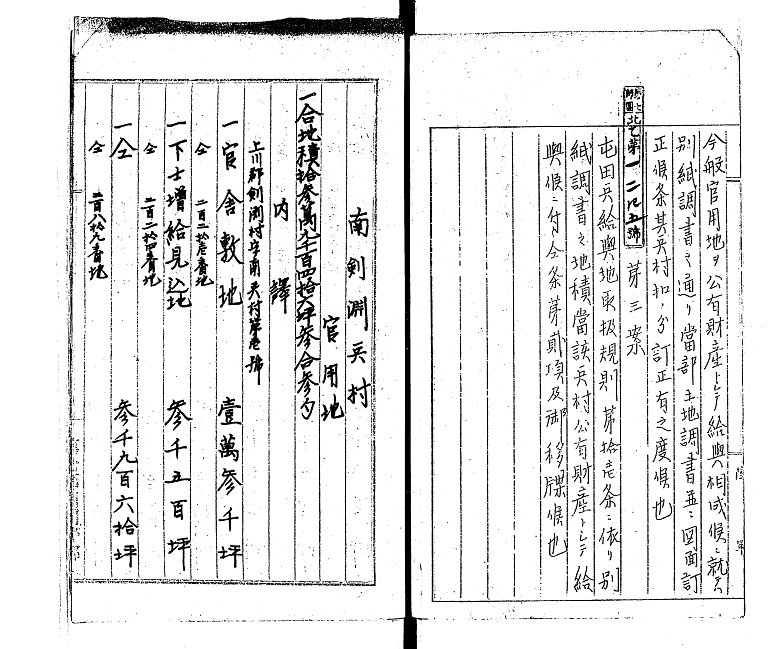 今般官用地ヲ公有財産トシテ給與相成候ニ就テハ
別紙調書之通リ當部土地調書並ニ図面訂
正候条其兵村扣ノ分訂正有之度候也
北乙第一二八五號
第三案
屯田兵給與地取扱規則第拾壱条ニ依リ別
紙調書之地積當該兵村公有財産トシテ給
與候ニ付仝条第貳項及御移牒候也
陸軍
南剣淵兵村
官用地
一合地積拾参萬九千百四拾六坪参合参夕
内譯
上川郡剣渕村字南兵村第壱號
一官舎敷地 壹萬参千坪
仝 二百二拾壱番地
一下士増給見込地 参千五百坪
仝 二百二拾四番地
一仝 参千九百六拾坪
仝 二百八拾九番地